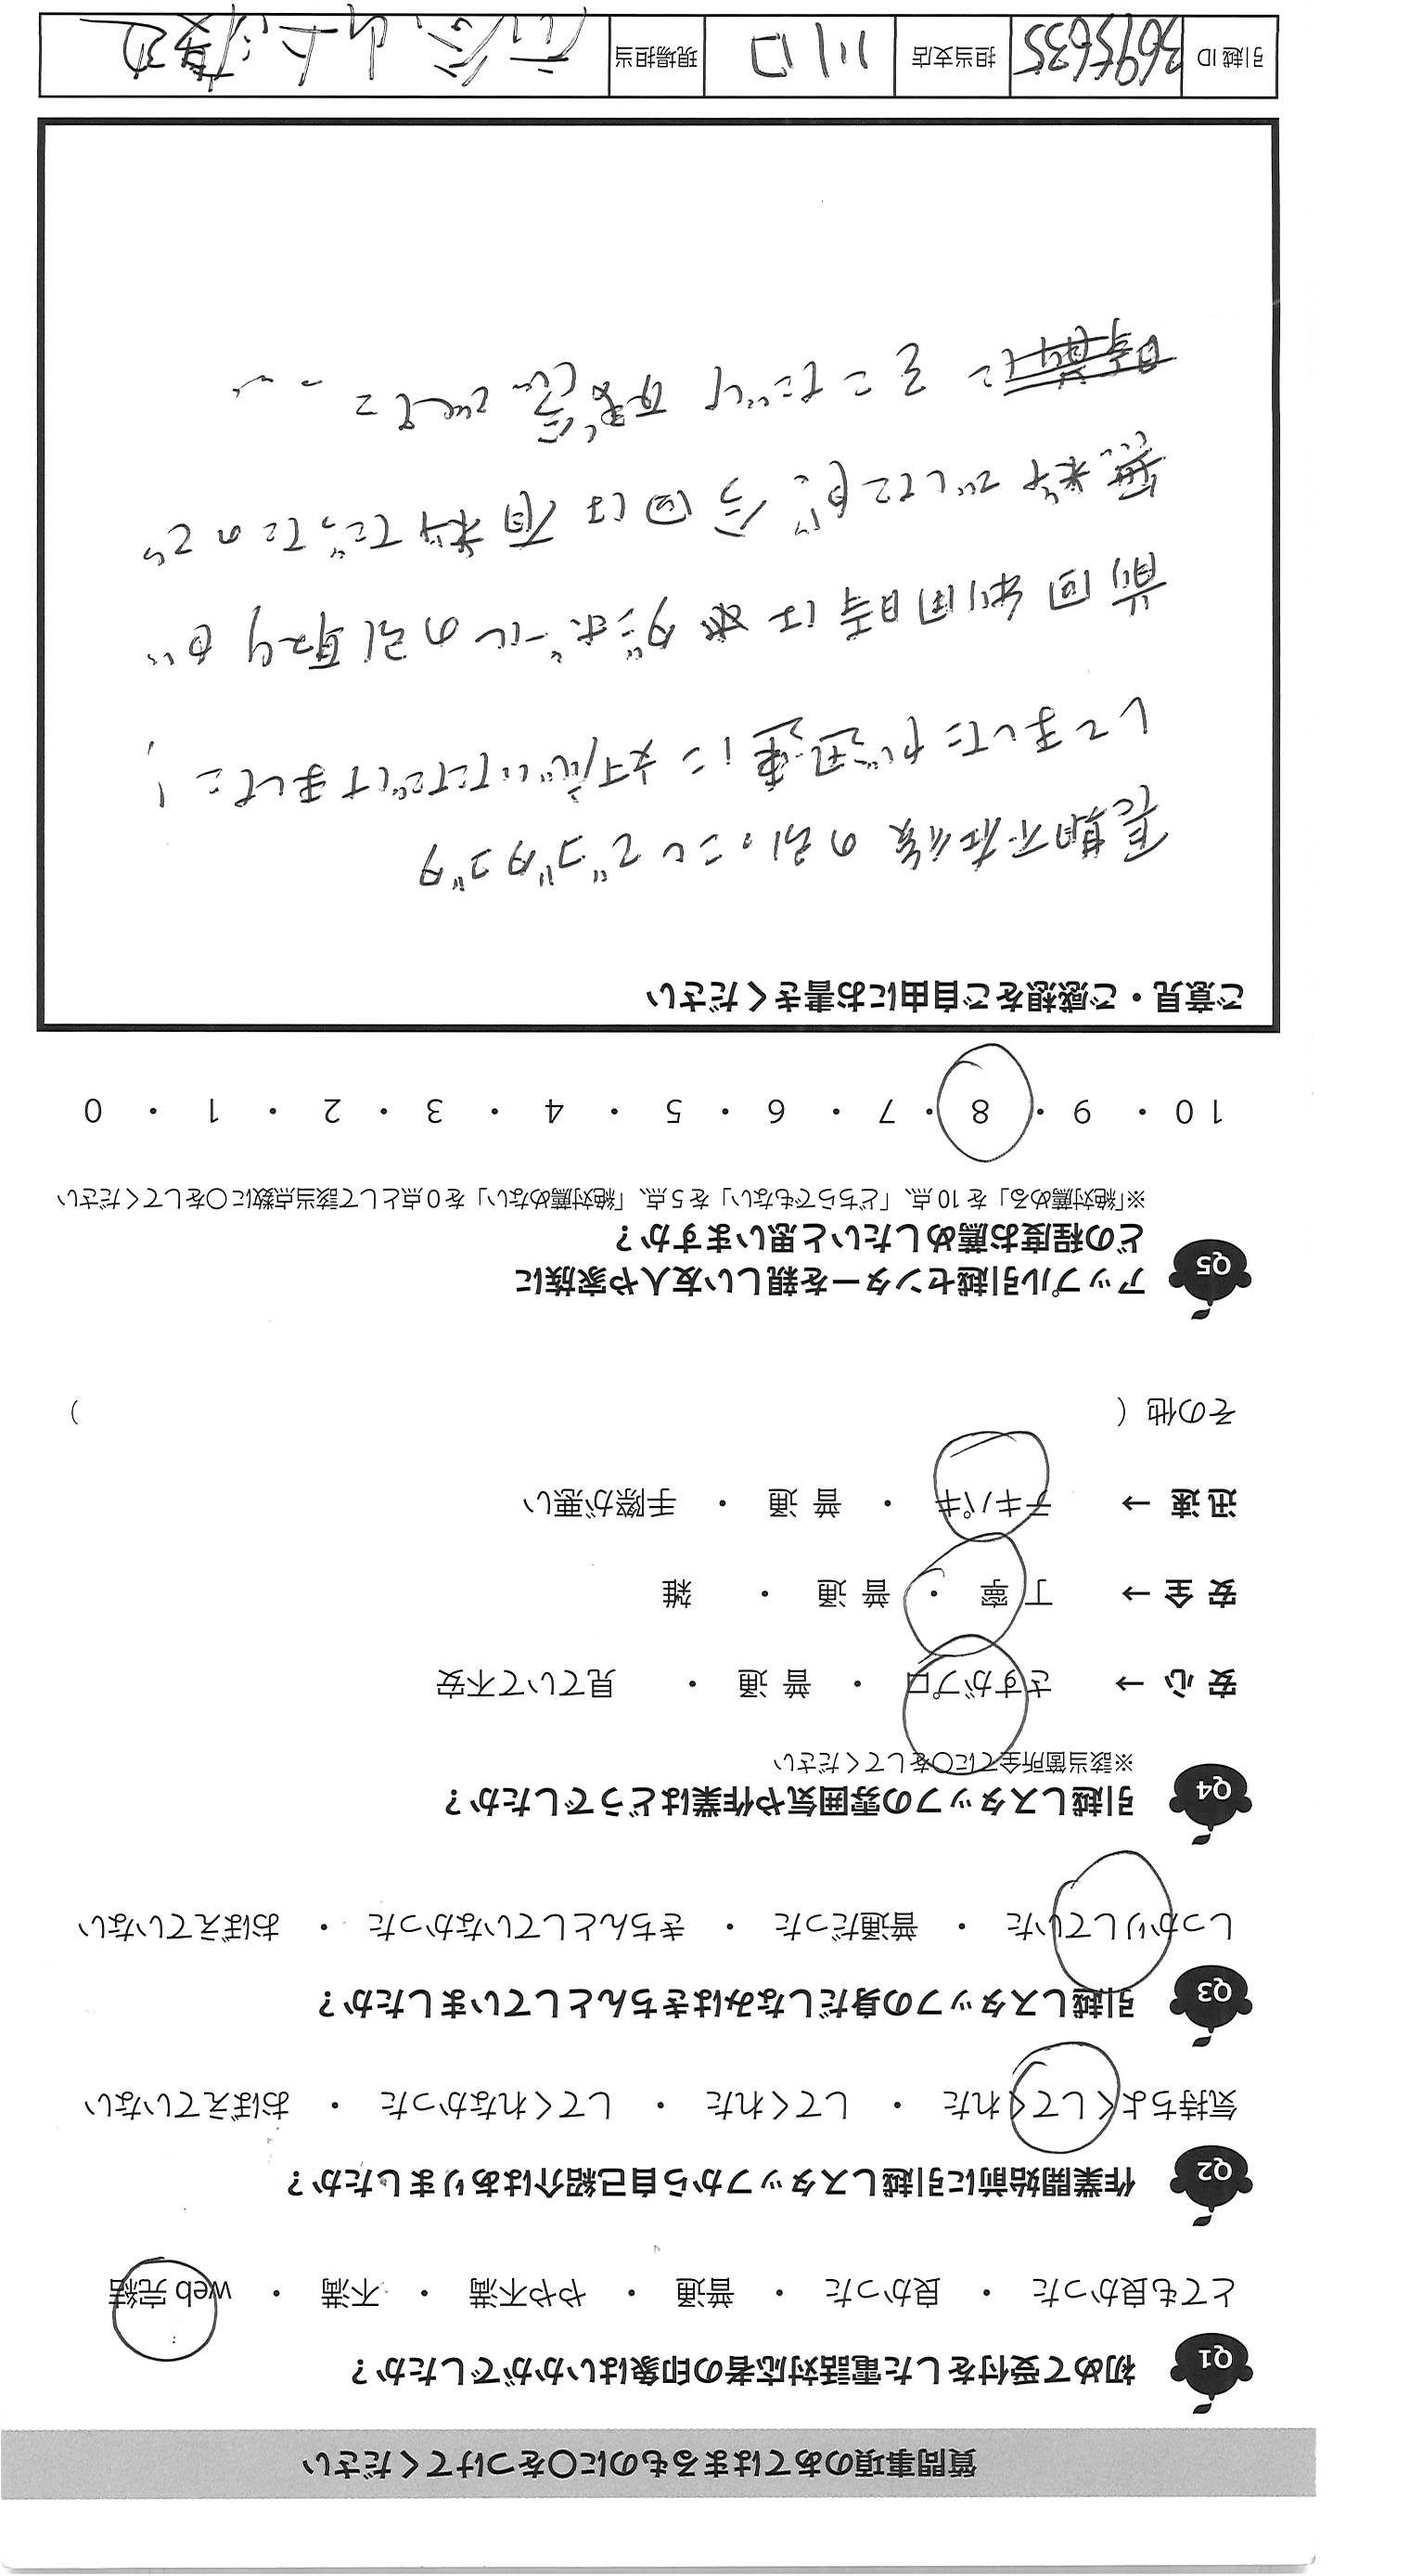 質問事項のあてはまるものに○をつけてください
Q1 初めて受付をした電話対応者の印象はいかがでしたか？
とても良かった ・ 良かった ・ 普通 ・ やや不満 ・ 不満 ・ web 完結
Q2 作業開始前に引越しスタッフから自己紹介はありましたか？
気持ちよくしてくれた ・ してくれた ・ してくれなかった ・ おぼえていない
Q3 引越しスタッフの身だしなみはきちんとしていましたか？
しっかりしていた ・ 普通だった ・ きちんとしていなかった ・ おぼえていない
Q4 引越しスタッフの雰囲気や作業はどうでしたか？
※該当箇所全てに○をしてください
安 心 → さすがプロ ・ 普 通 ・ 見ていて不安
安 全 → 丁 寧 ・ 普 通 ・ 雑
迅 速 → テキパキ ・ 普 通 ・ 手際が悪い
その他 （ ）
Q5 アップル引越センターを親しい友人や家族に
どの程度お薦めしたいと思いますか？
※「絶対薦める」を 10 点、「どちらでもない」を 5 点、「絶対薦めない」を 0 点として該当点数に○をしてください
10 ・ 9 ・ 8 ・ 7 ・ 6 ・ 5 ・ 4 ・ 3 ・ 2 ・ 1 ・ 0
ご意見・ご感想をご自由にお書きください
長期不在後の引っこしでゴタゴタ
してましたが迅速に対応いただけました！
前回利用時はダンボールの引取りが
無料でしたが、今回は有料だったので
そこだけ残念でした
引越 ID 3695635 担当支店 川口 現場担当